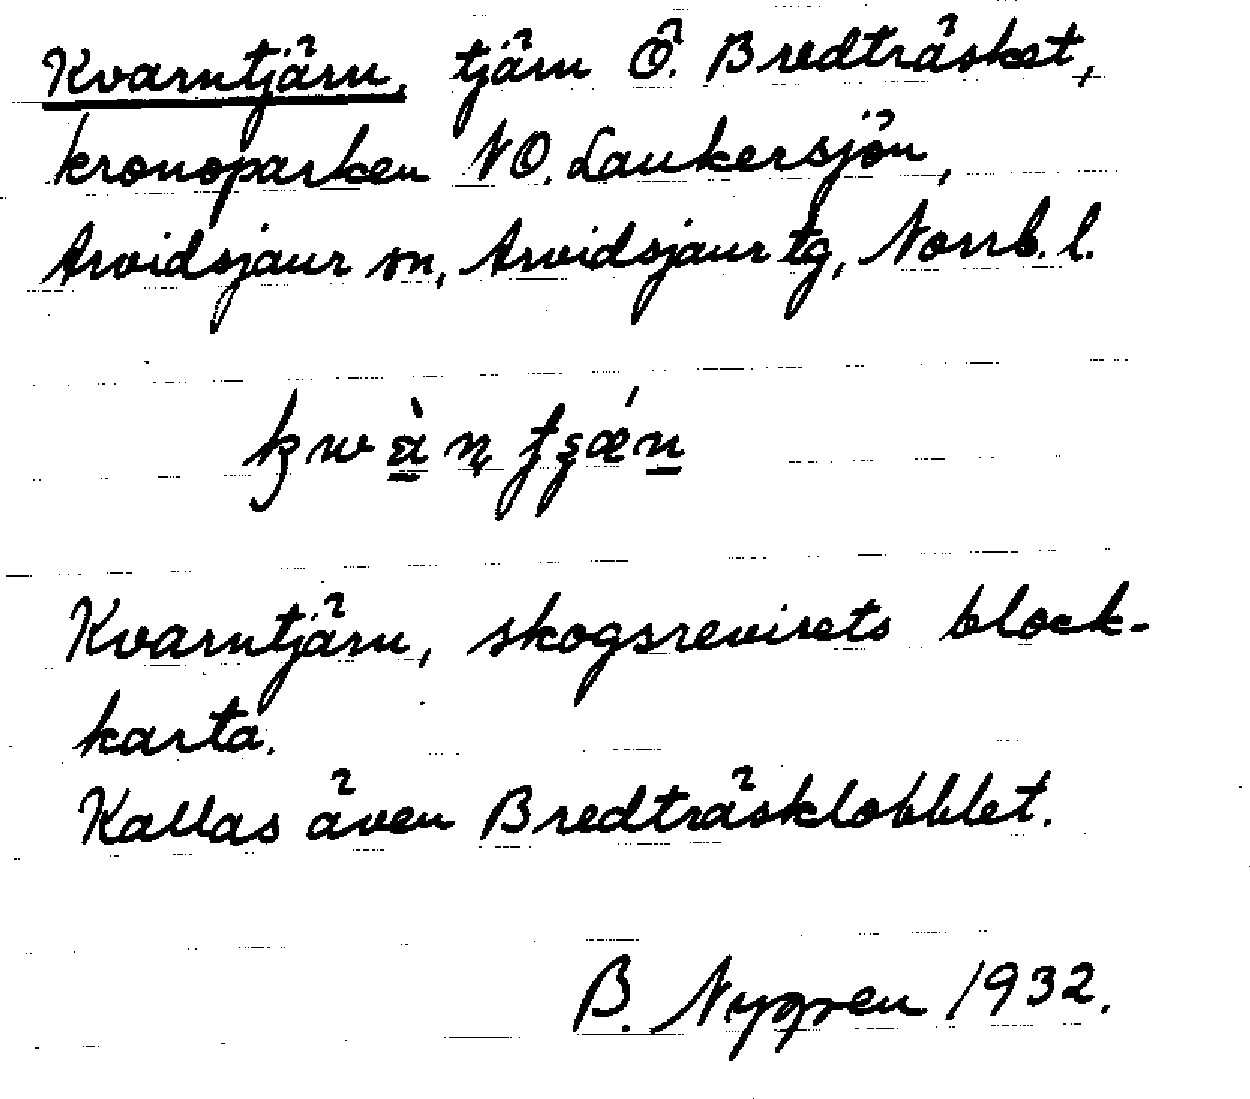 Kvarntjärn, tjärn Ö. Bredträsket,
kronoparken NO. Laukersjön,
Arvidsjaur sn, Arvidsjaur tg, Norrb. l.
Kvarntjärn, skogsrevirets block-
karta.
Kallas även Bredträsklobblet.
B. Nygren 1932.